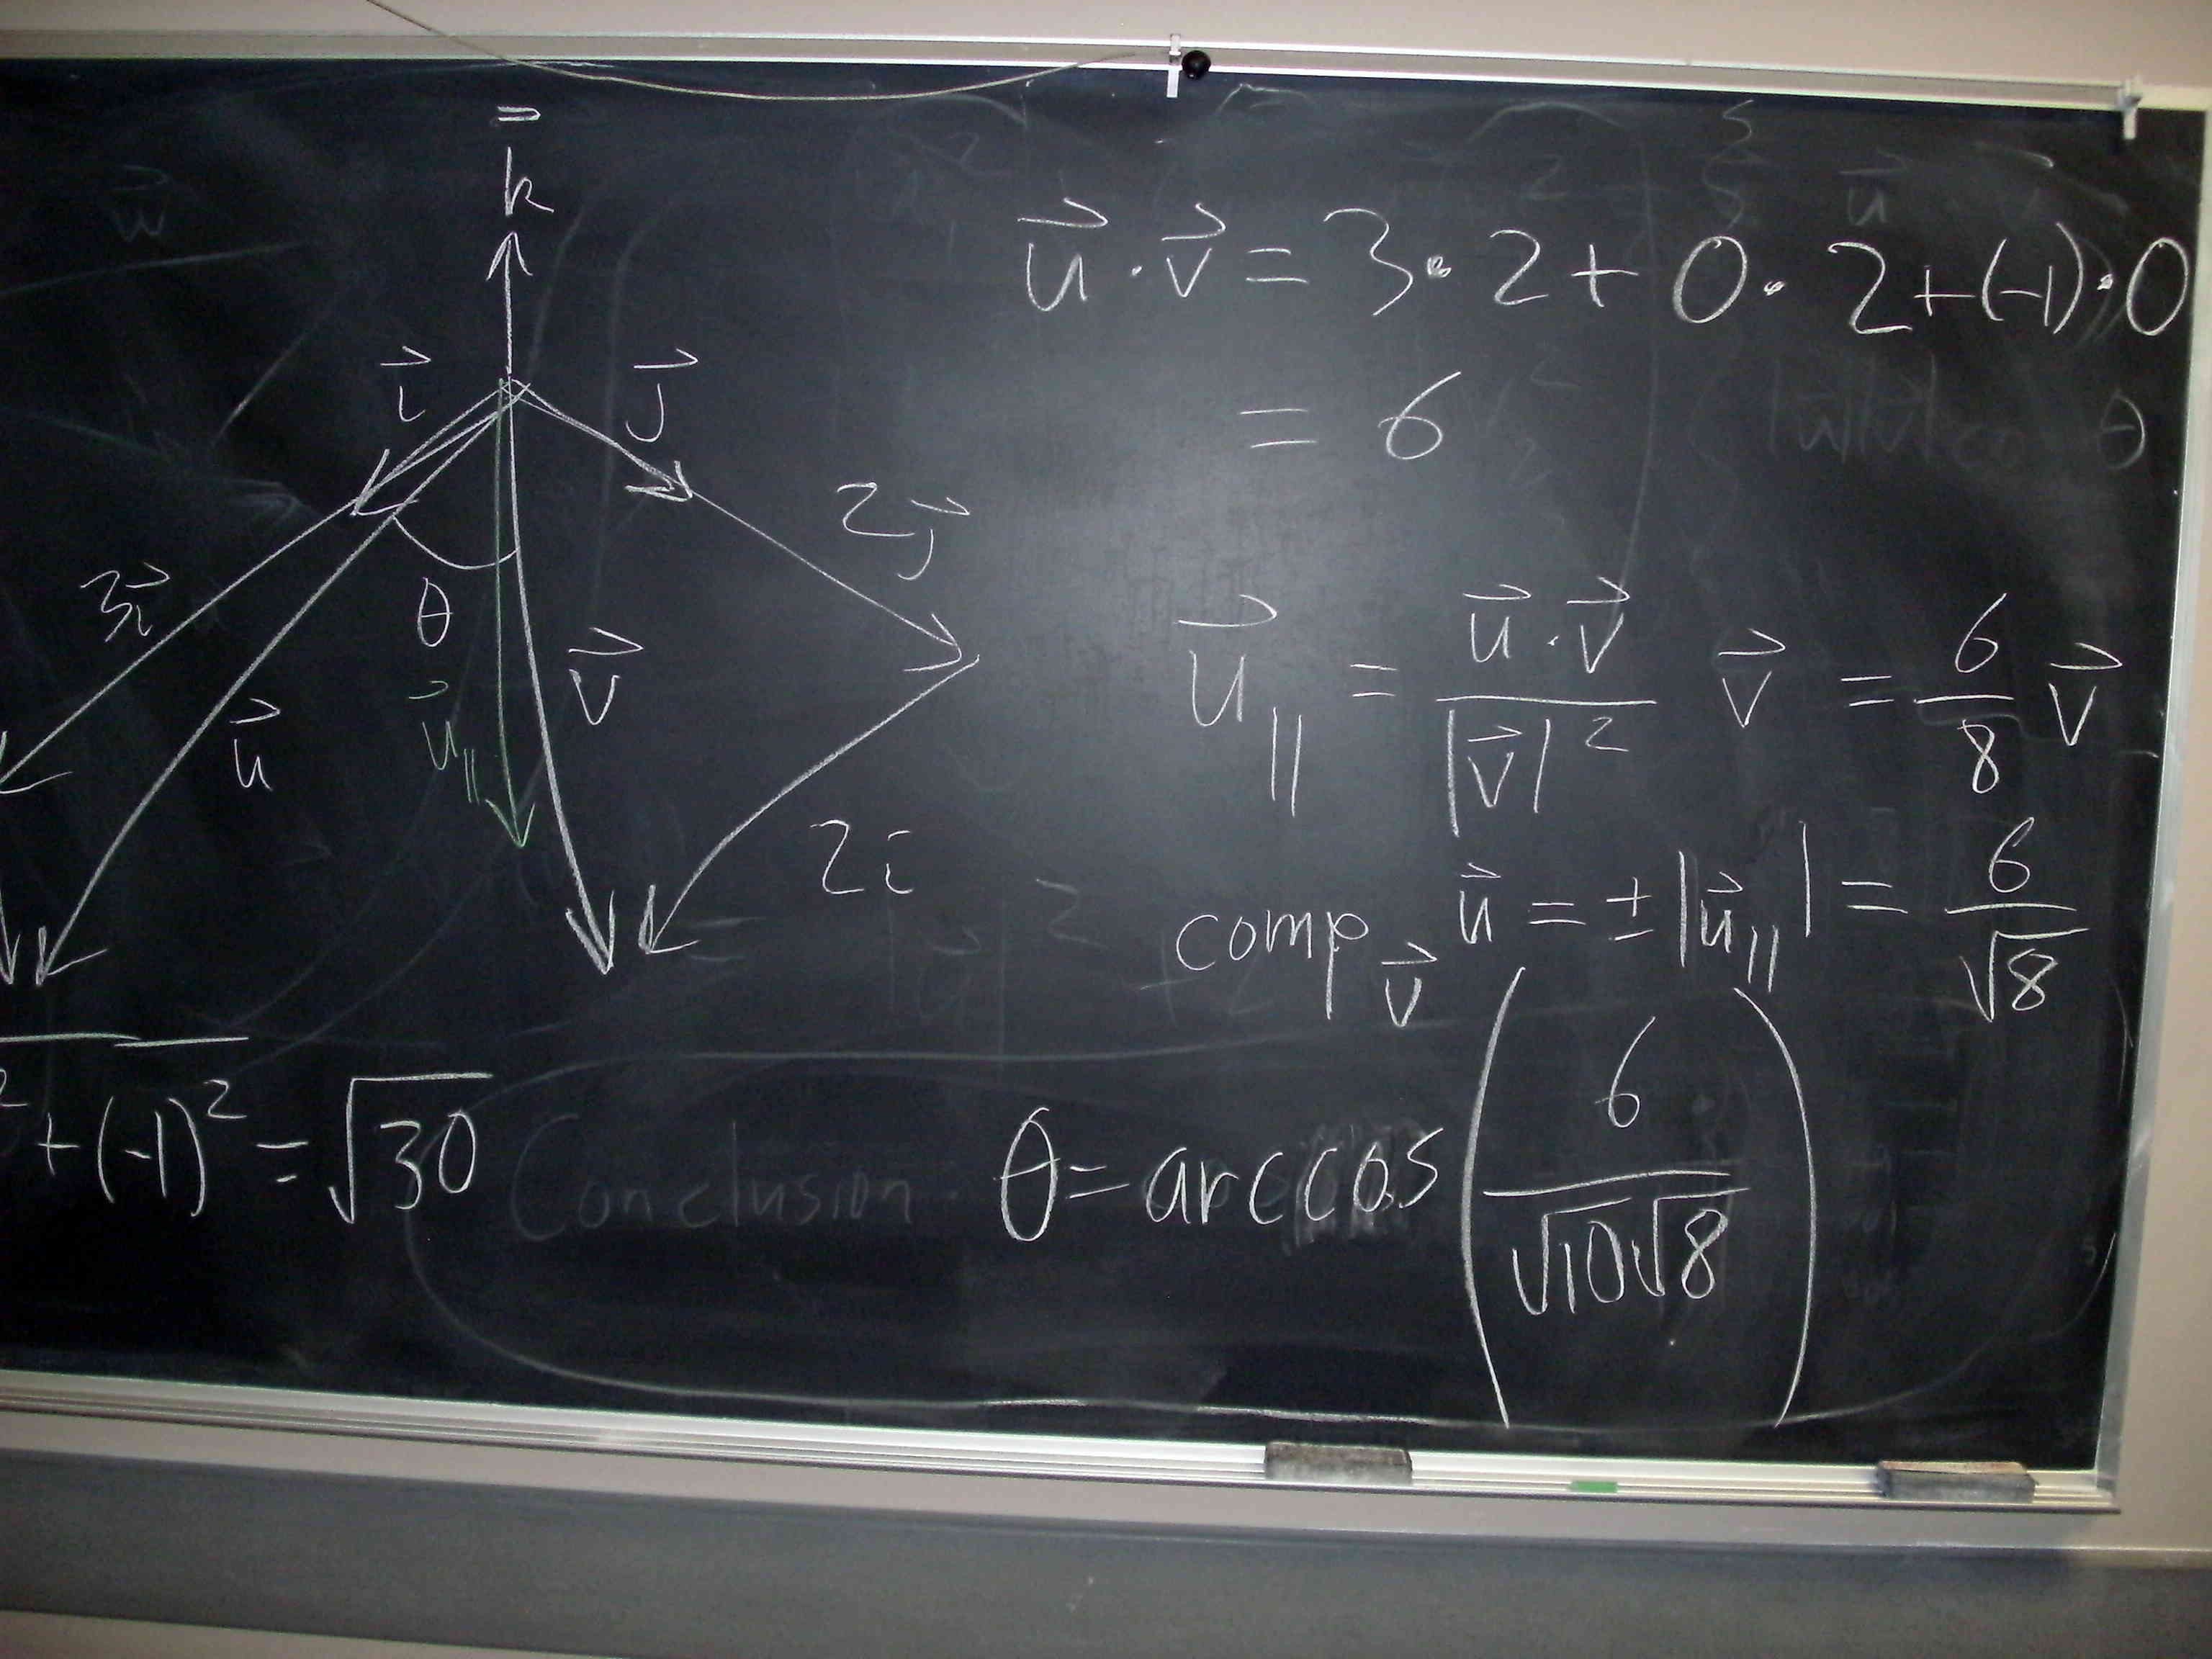 k
i⃗ j⃗
2j⃗
3i⃗
θ
u⃗ u⃗∥ v⃗
2i
² + (-1)² = √30
u⃗ · v⃗ = 3 · 2 + 0 · 2 + (-1) · 0
= 6
u⃗∥ = (u⃗ · v⃗)/|v⃗|² v⃗ = 6/8 v⃗
comp_v⃗ u⃗ = ± |u⃗∥| = 6/√8
Conclusion θ = arccos (6/(√10√8))